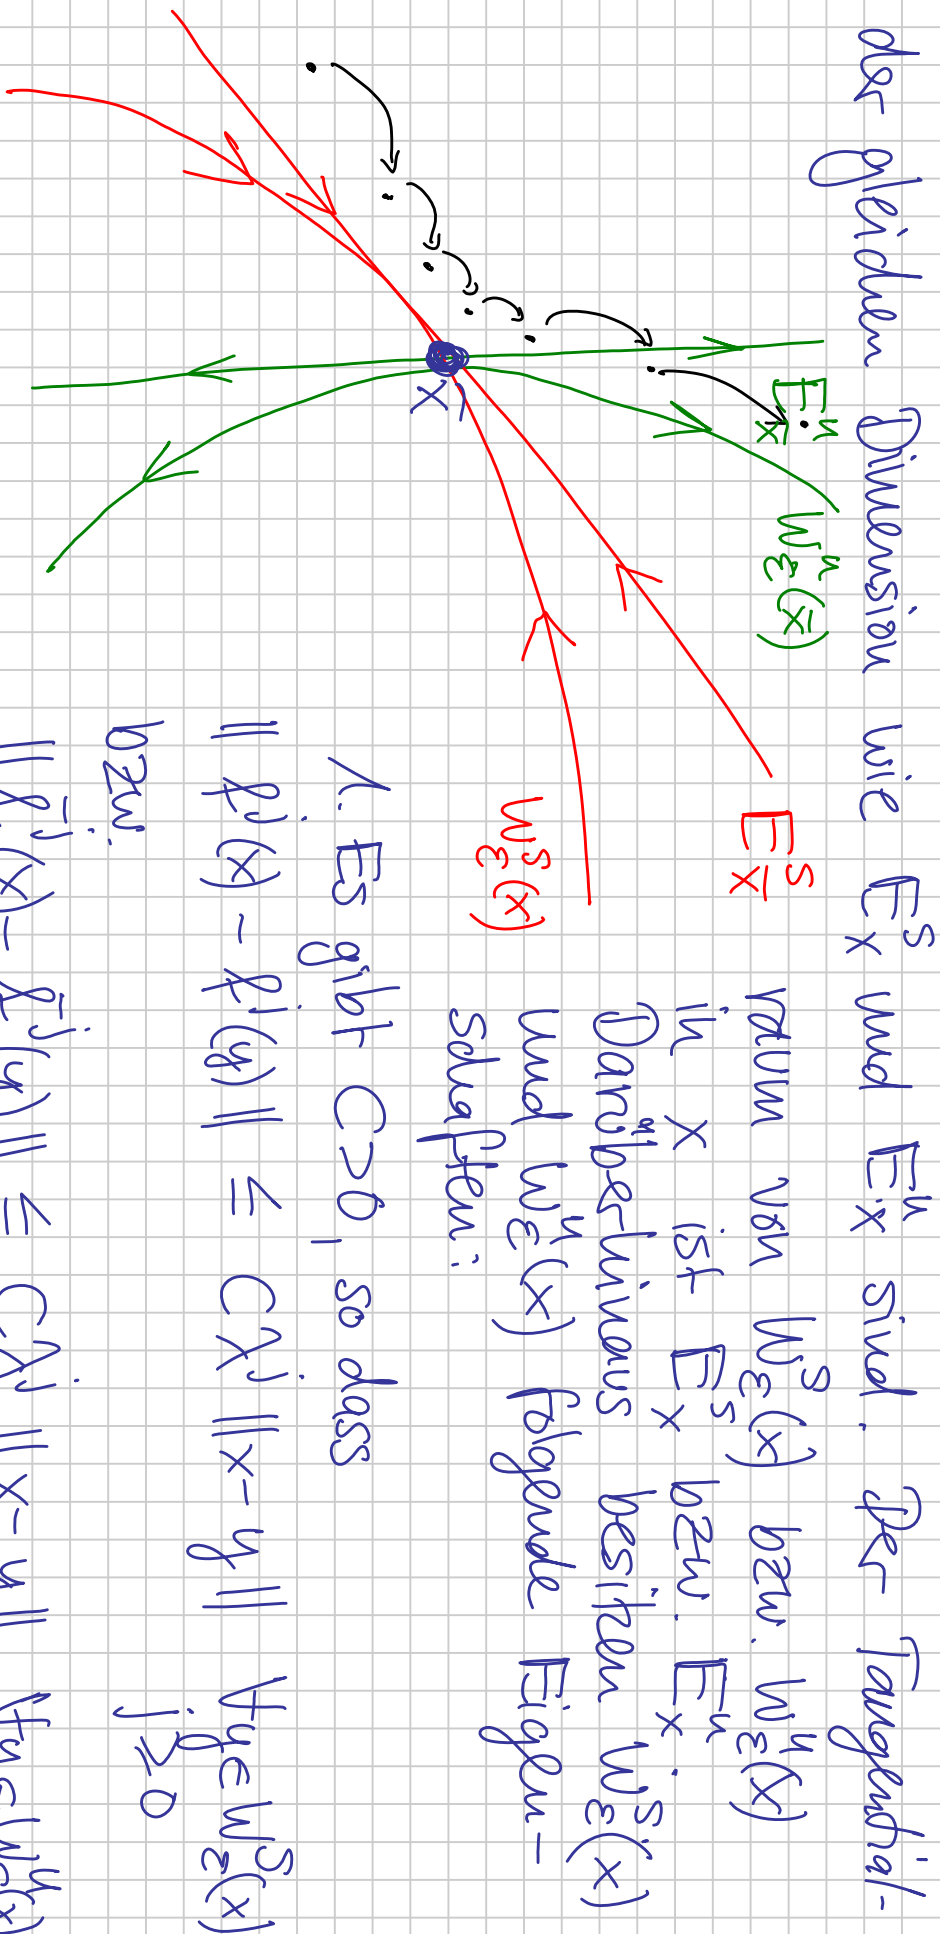 der gleichen Dimension wie E^s_x und E^u_x sind. Der Tangential-
raum von W^s_ε(x) bzw. W^u_ε(x)
in x ist E^s_x bzw. E^u_x.
Darüberhinaus besitzen W^s_ε(x)
und W^u_ε(x) folgende Eigen-
schaften:
E^u_x̄
W^u_ε(x̄)
x
E^s_x̄
W^s_ε(x)
1. Es gibt C>0, so dass
‖f^j(x) - f^j(y)‖ ≤ Cλ^j ‖x-y‖ ∀y∈W^s_ε(x)
j≥0
bzw.
‖f^-j(x) - f^-j(y)‖ ≤ Cλ^j ‖x-y‖ ∀y∈W^u_ε(x)